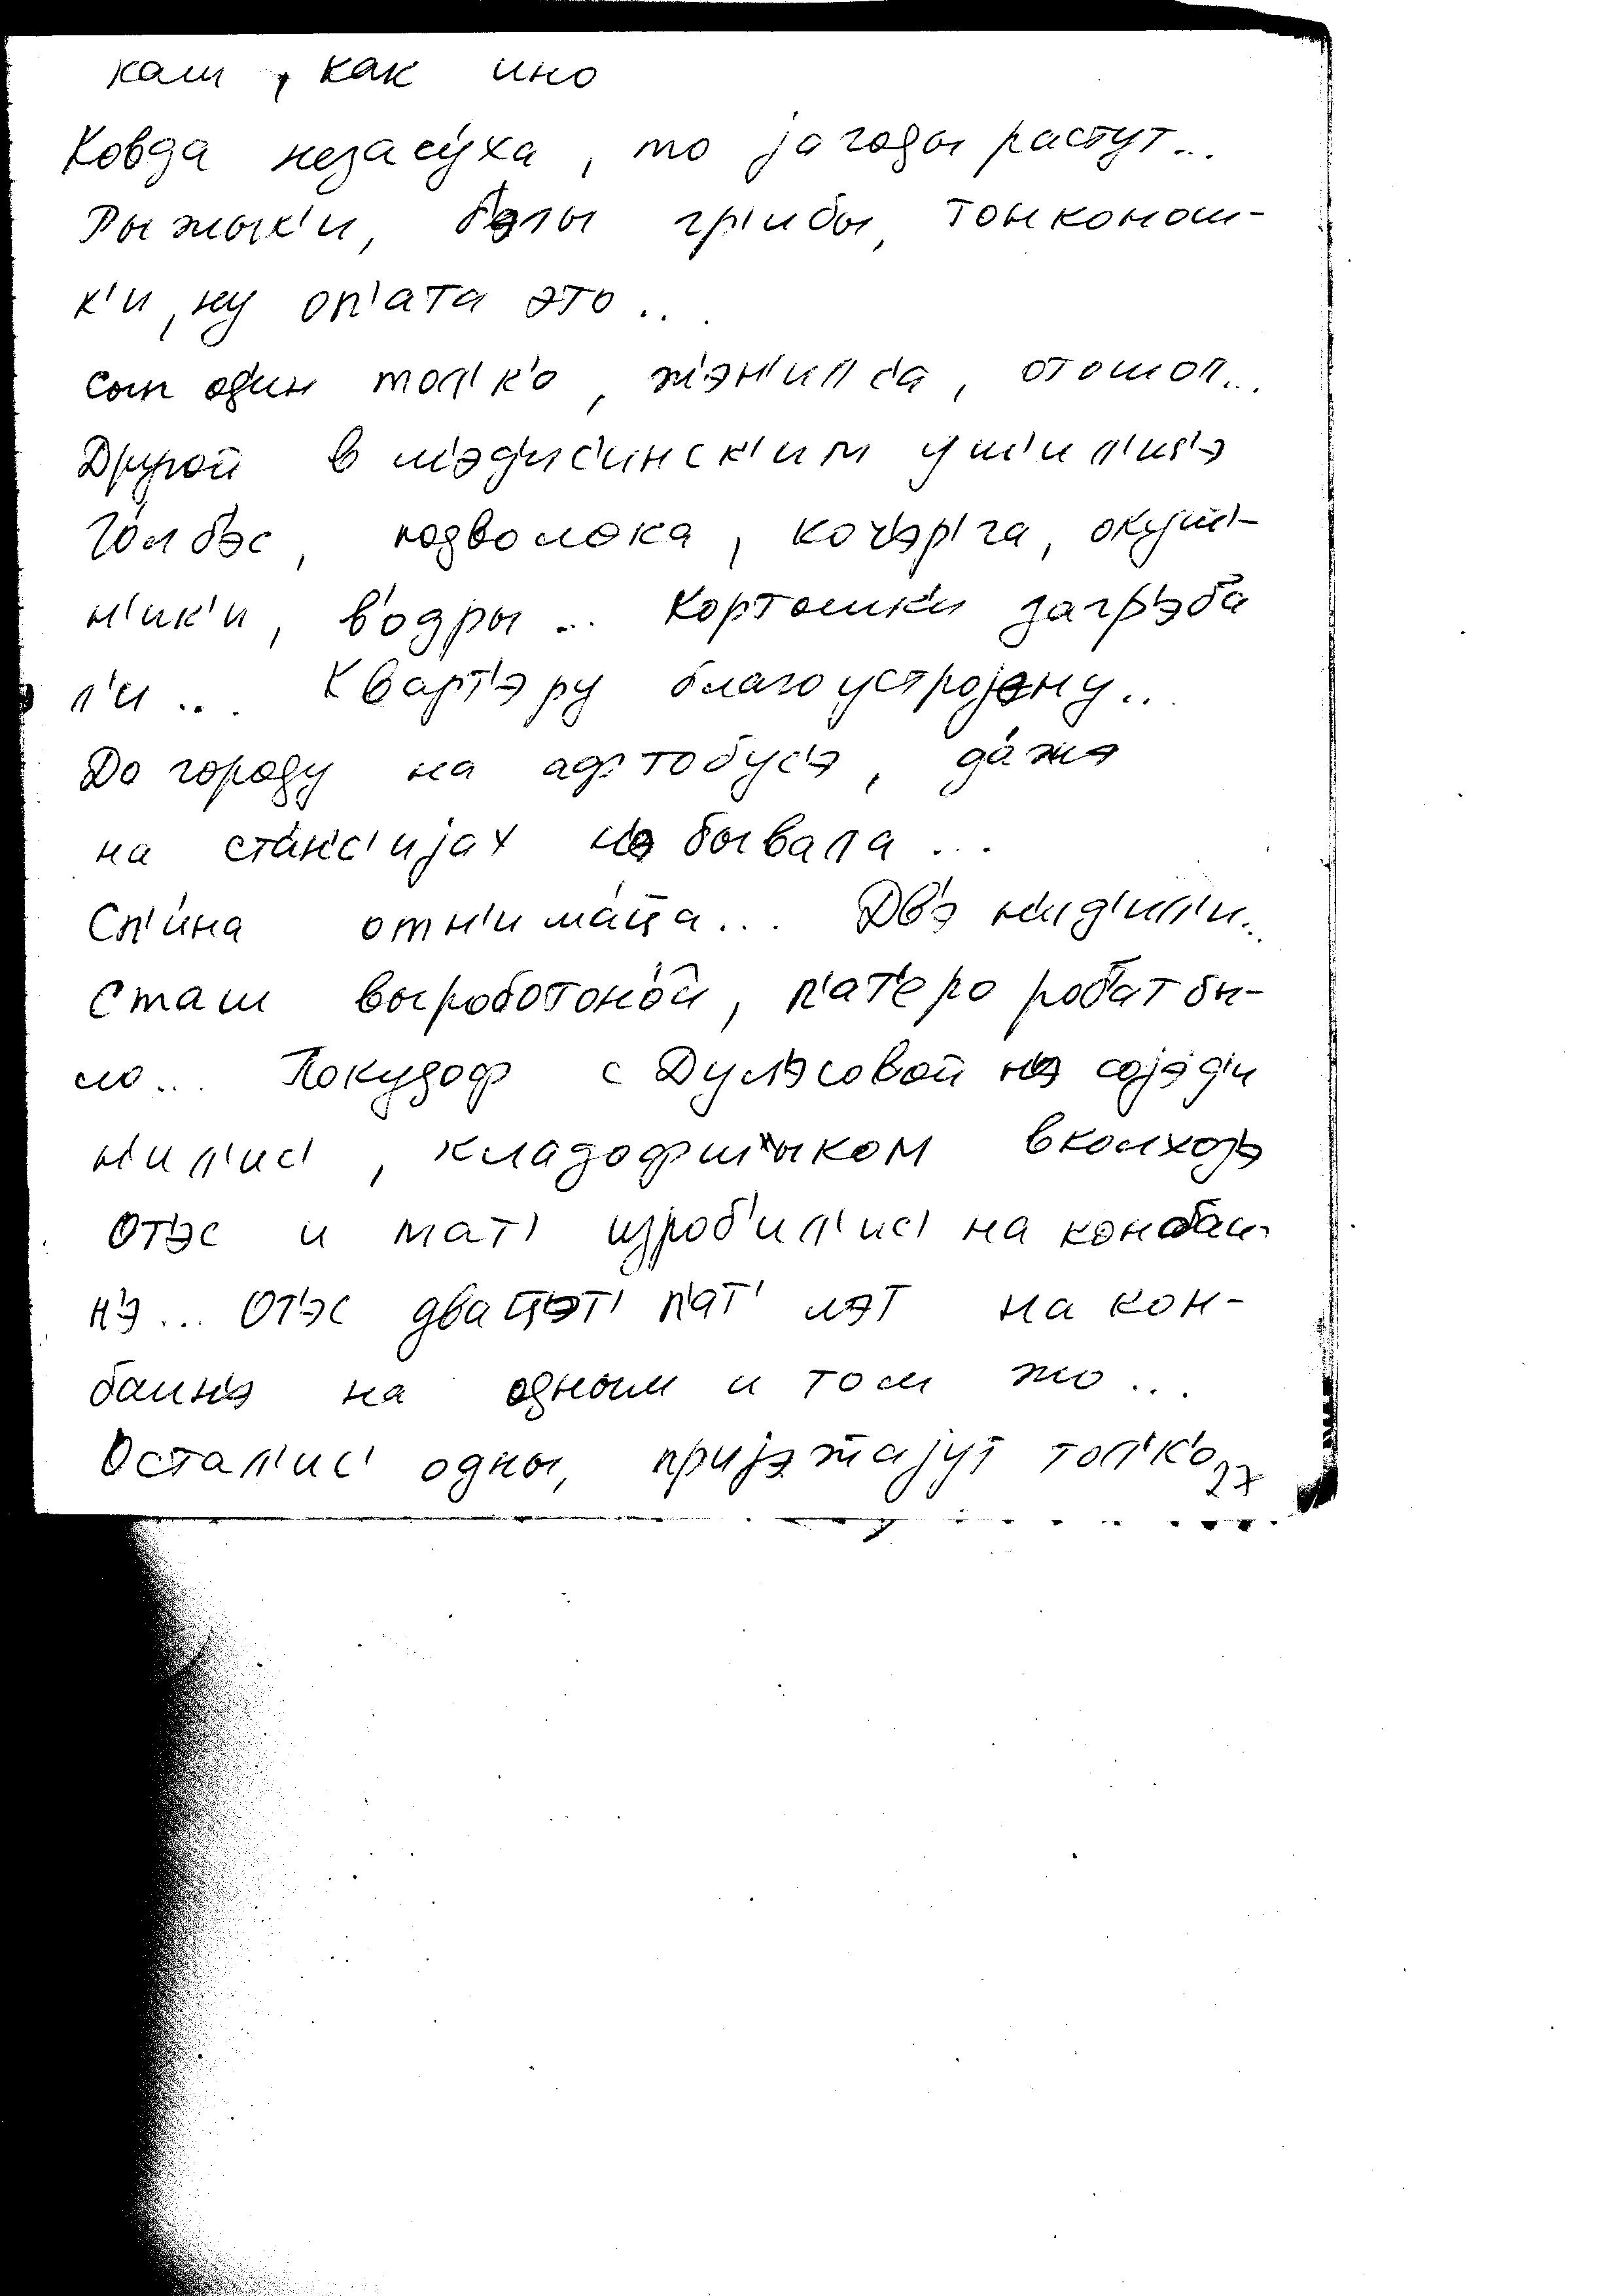 каш, как ино
Ковда незасу́ха, то јагоды растут...
Рыжык'и, б'элы гр'ибы, тонконош-
к'и, ну оп'ата это...
сын од'ин тол'к'о, жэн'илс'а, отошол...
Другой в м'эд'ис'инск'им уш'ил'иш'э
Го́лб'эс, подволока, коч'эр'га, окуш'-
н'ик'и, в'одры... Кортошк'и загр'эба
л'и... Кварт'эру благоустројэну...
До городу на афтобус'э, да́жэ
на ста́нс'ијах н'э бывала...
Сп'и́на отн'има́ц̄а... Дв'э н'ид'ил'и...
Сташ выроботоно́й, п'ат'еро роб'ат бы-
ло... Покудоф с Дул'эсовой н'э сојэд'и
н'ил'ис', кладофшыком в колхоз'э
От'эс и мат' изроб'ил'ис' на конбаи-
н'э... От'эс двац̄эт' п'ат' лэт на кон-
баин'э на одным и том жо...
Остал'ис' одны, пријэж̄ајут тол'к'о
27